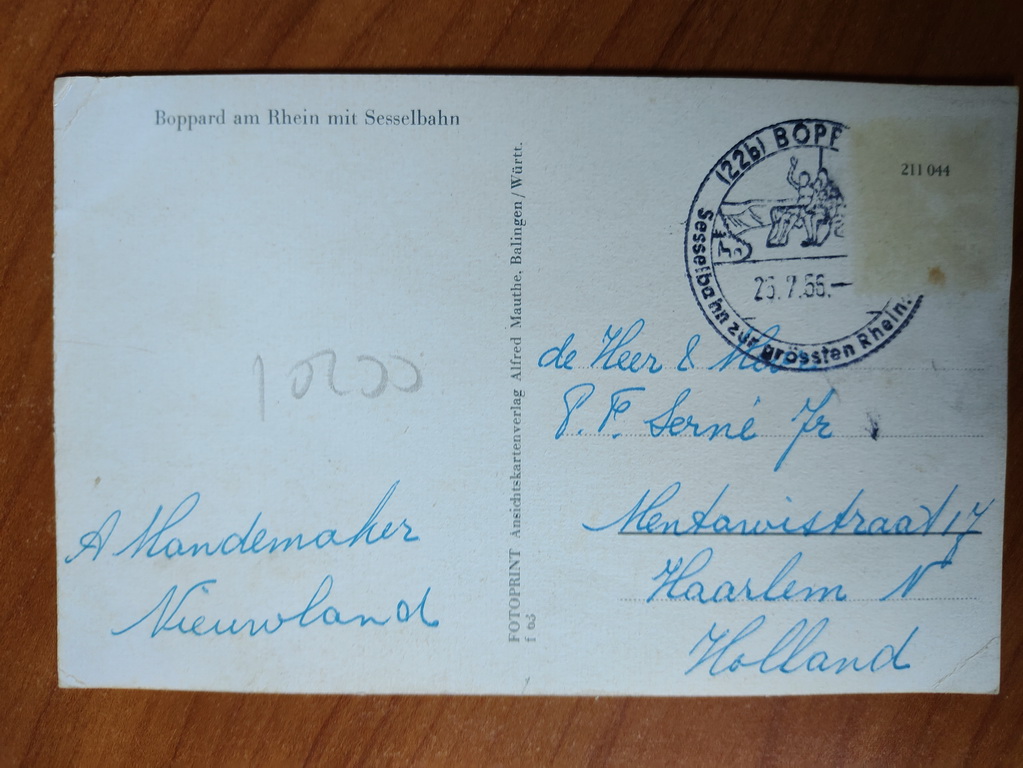 Boppard am Rhein mit Sesselbahn
A Mandemaker
Nieuwland
FOTOPRINT Ansichtskartenverlag Alfred Mauthe, Balingen/Württ.
f 63
(22b) BOPP
Sesselbahn zur grössten Rhein
211 044
de Heer & Mevr
P. F. Serné Jr
Mentawistraat 17
Haarlem N
Holland